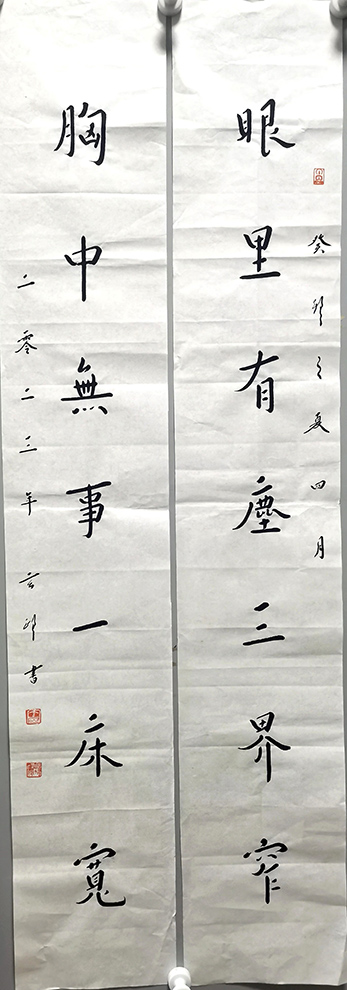 眼里有塵三界窄
癸卯之夏四月
胸中無事一床寬
二零二三年